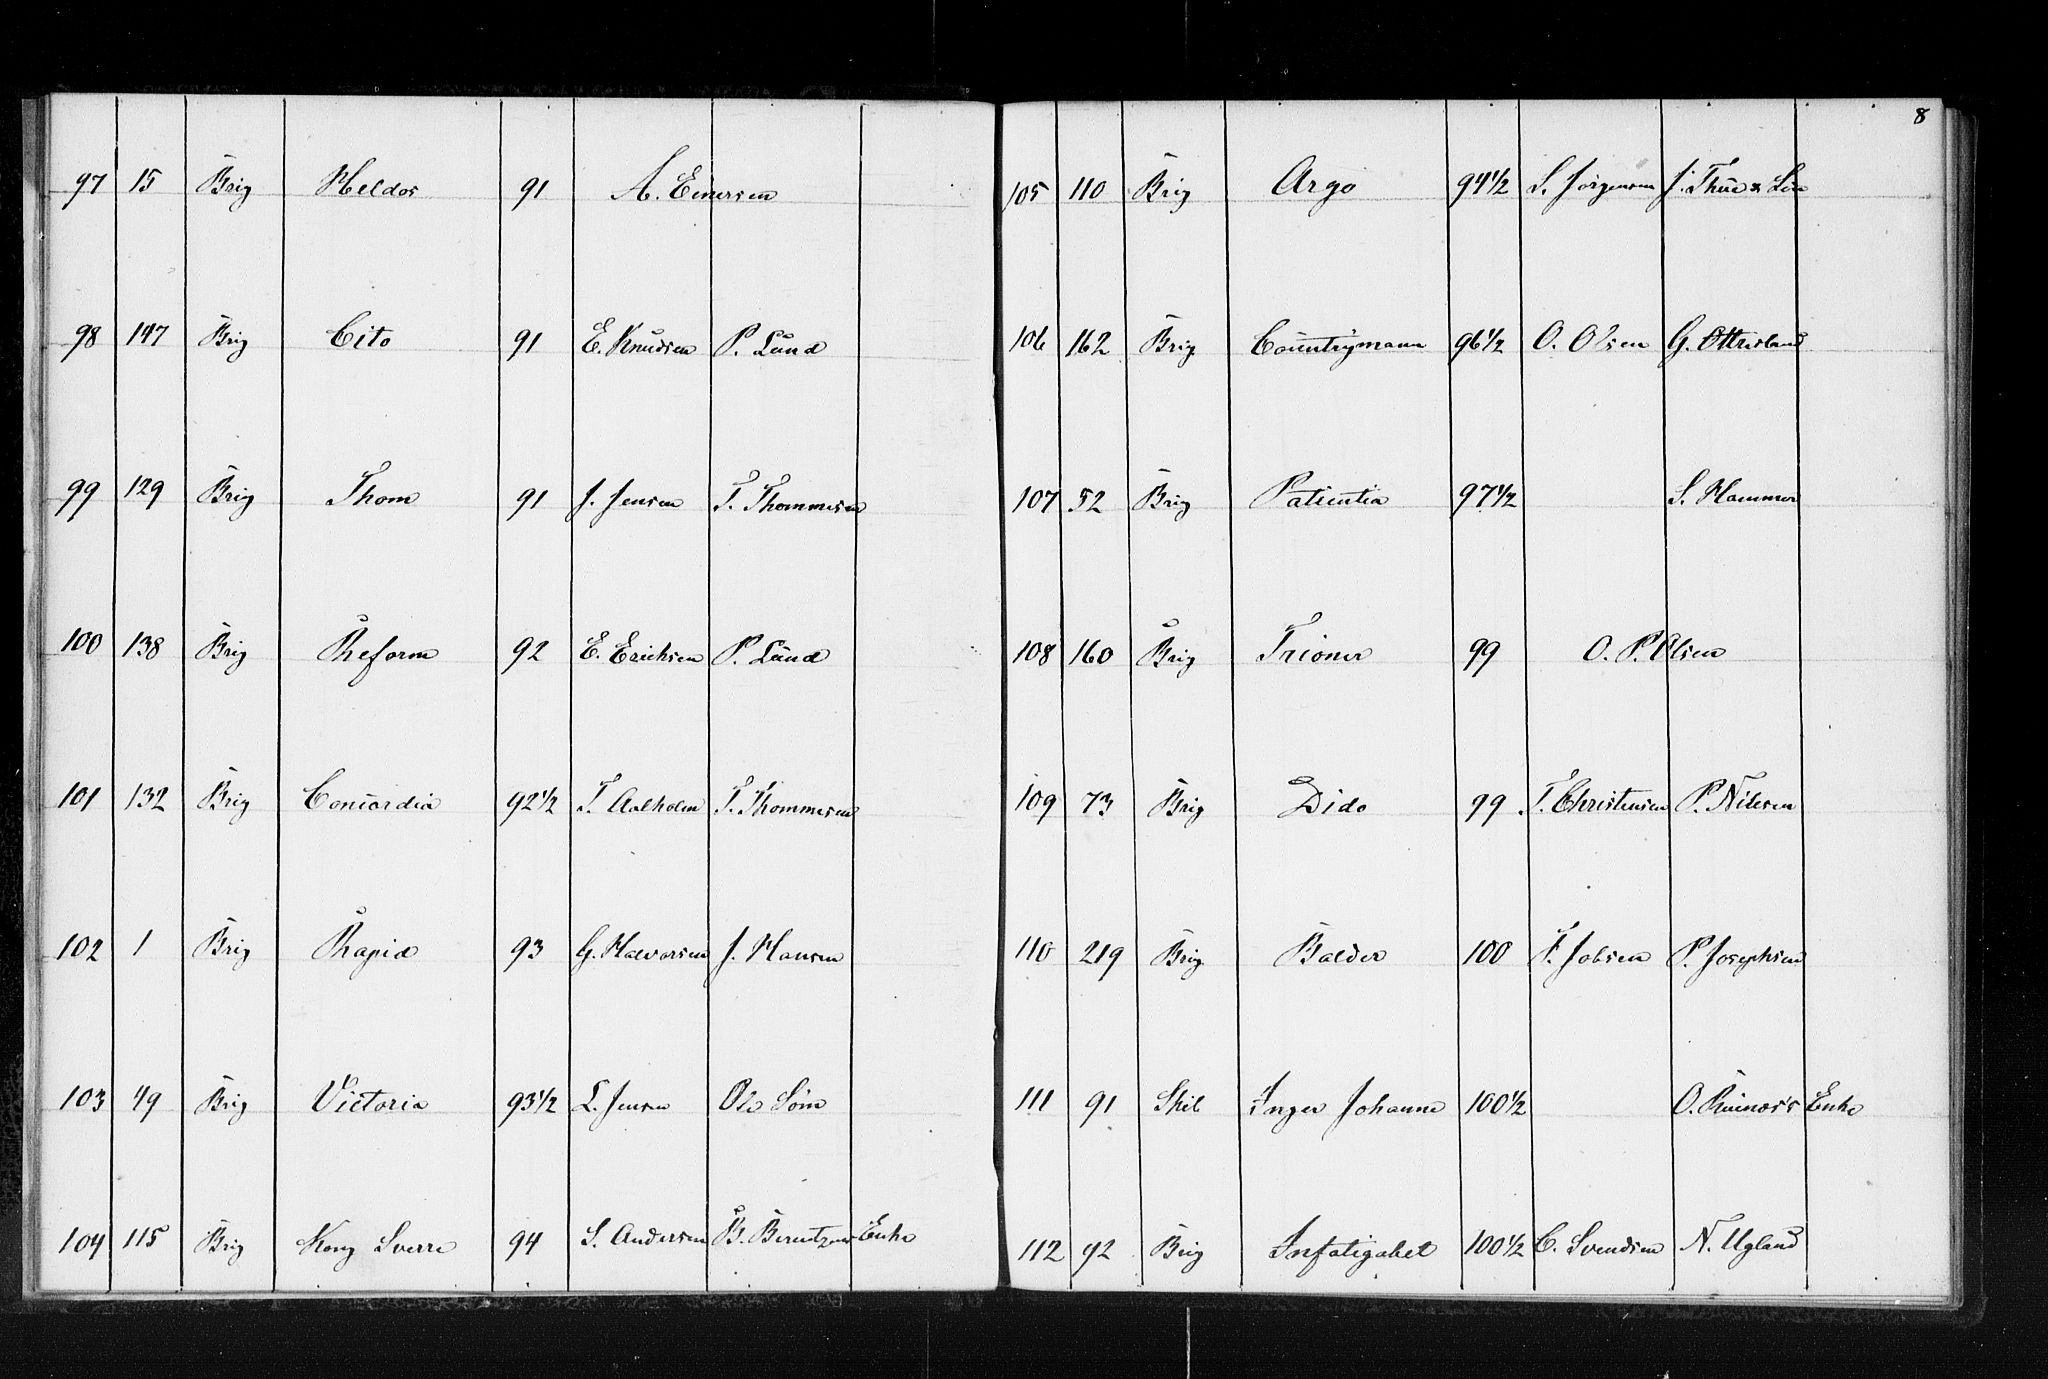 97 15 Brig Heldos 91 A. Einersen
98 147 Brig Cito 91 E. Knudsen P. Lund
99 129 Brig Thom 91 J. Jensen T. Thommesen
100 138 Brig Reform 92 E. Ericksen P. Lund
101 132 Brig Concordia 92 1/2 T. Aalholm T. Thommesen
102 1 Brig Rapid 93 G. Halvorsen J. Hansen
103 49 Brig Victoria 93 1/2 L. Jensen Ole Söm
104 115 Brig Kong Sverre 94 S. Andersen B. Berntzens Enke
8
105 110 Brig Argo 94 1/2 S. Jörgensen J. Thue &
106 162 Brig Countrymann 96 1/2 O. Olsen G. Otterland
107 52 Brig Patientia 97 1/2 S. Hammer
108 160 Brig Trioner 99 O. P. Olsen
109 73 Brig Dido 99 T. Christensen P. Nilsen
110 219 Brig Balder 100 F. Jobsen P. Josephsen
111 91 Skib Inger Johanne 100 1/2 O. Enke
112 92 Brig Infatigabel 100 1/2 C. Svendsen N. Ugland